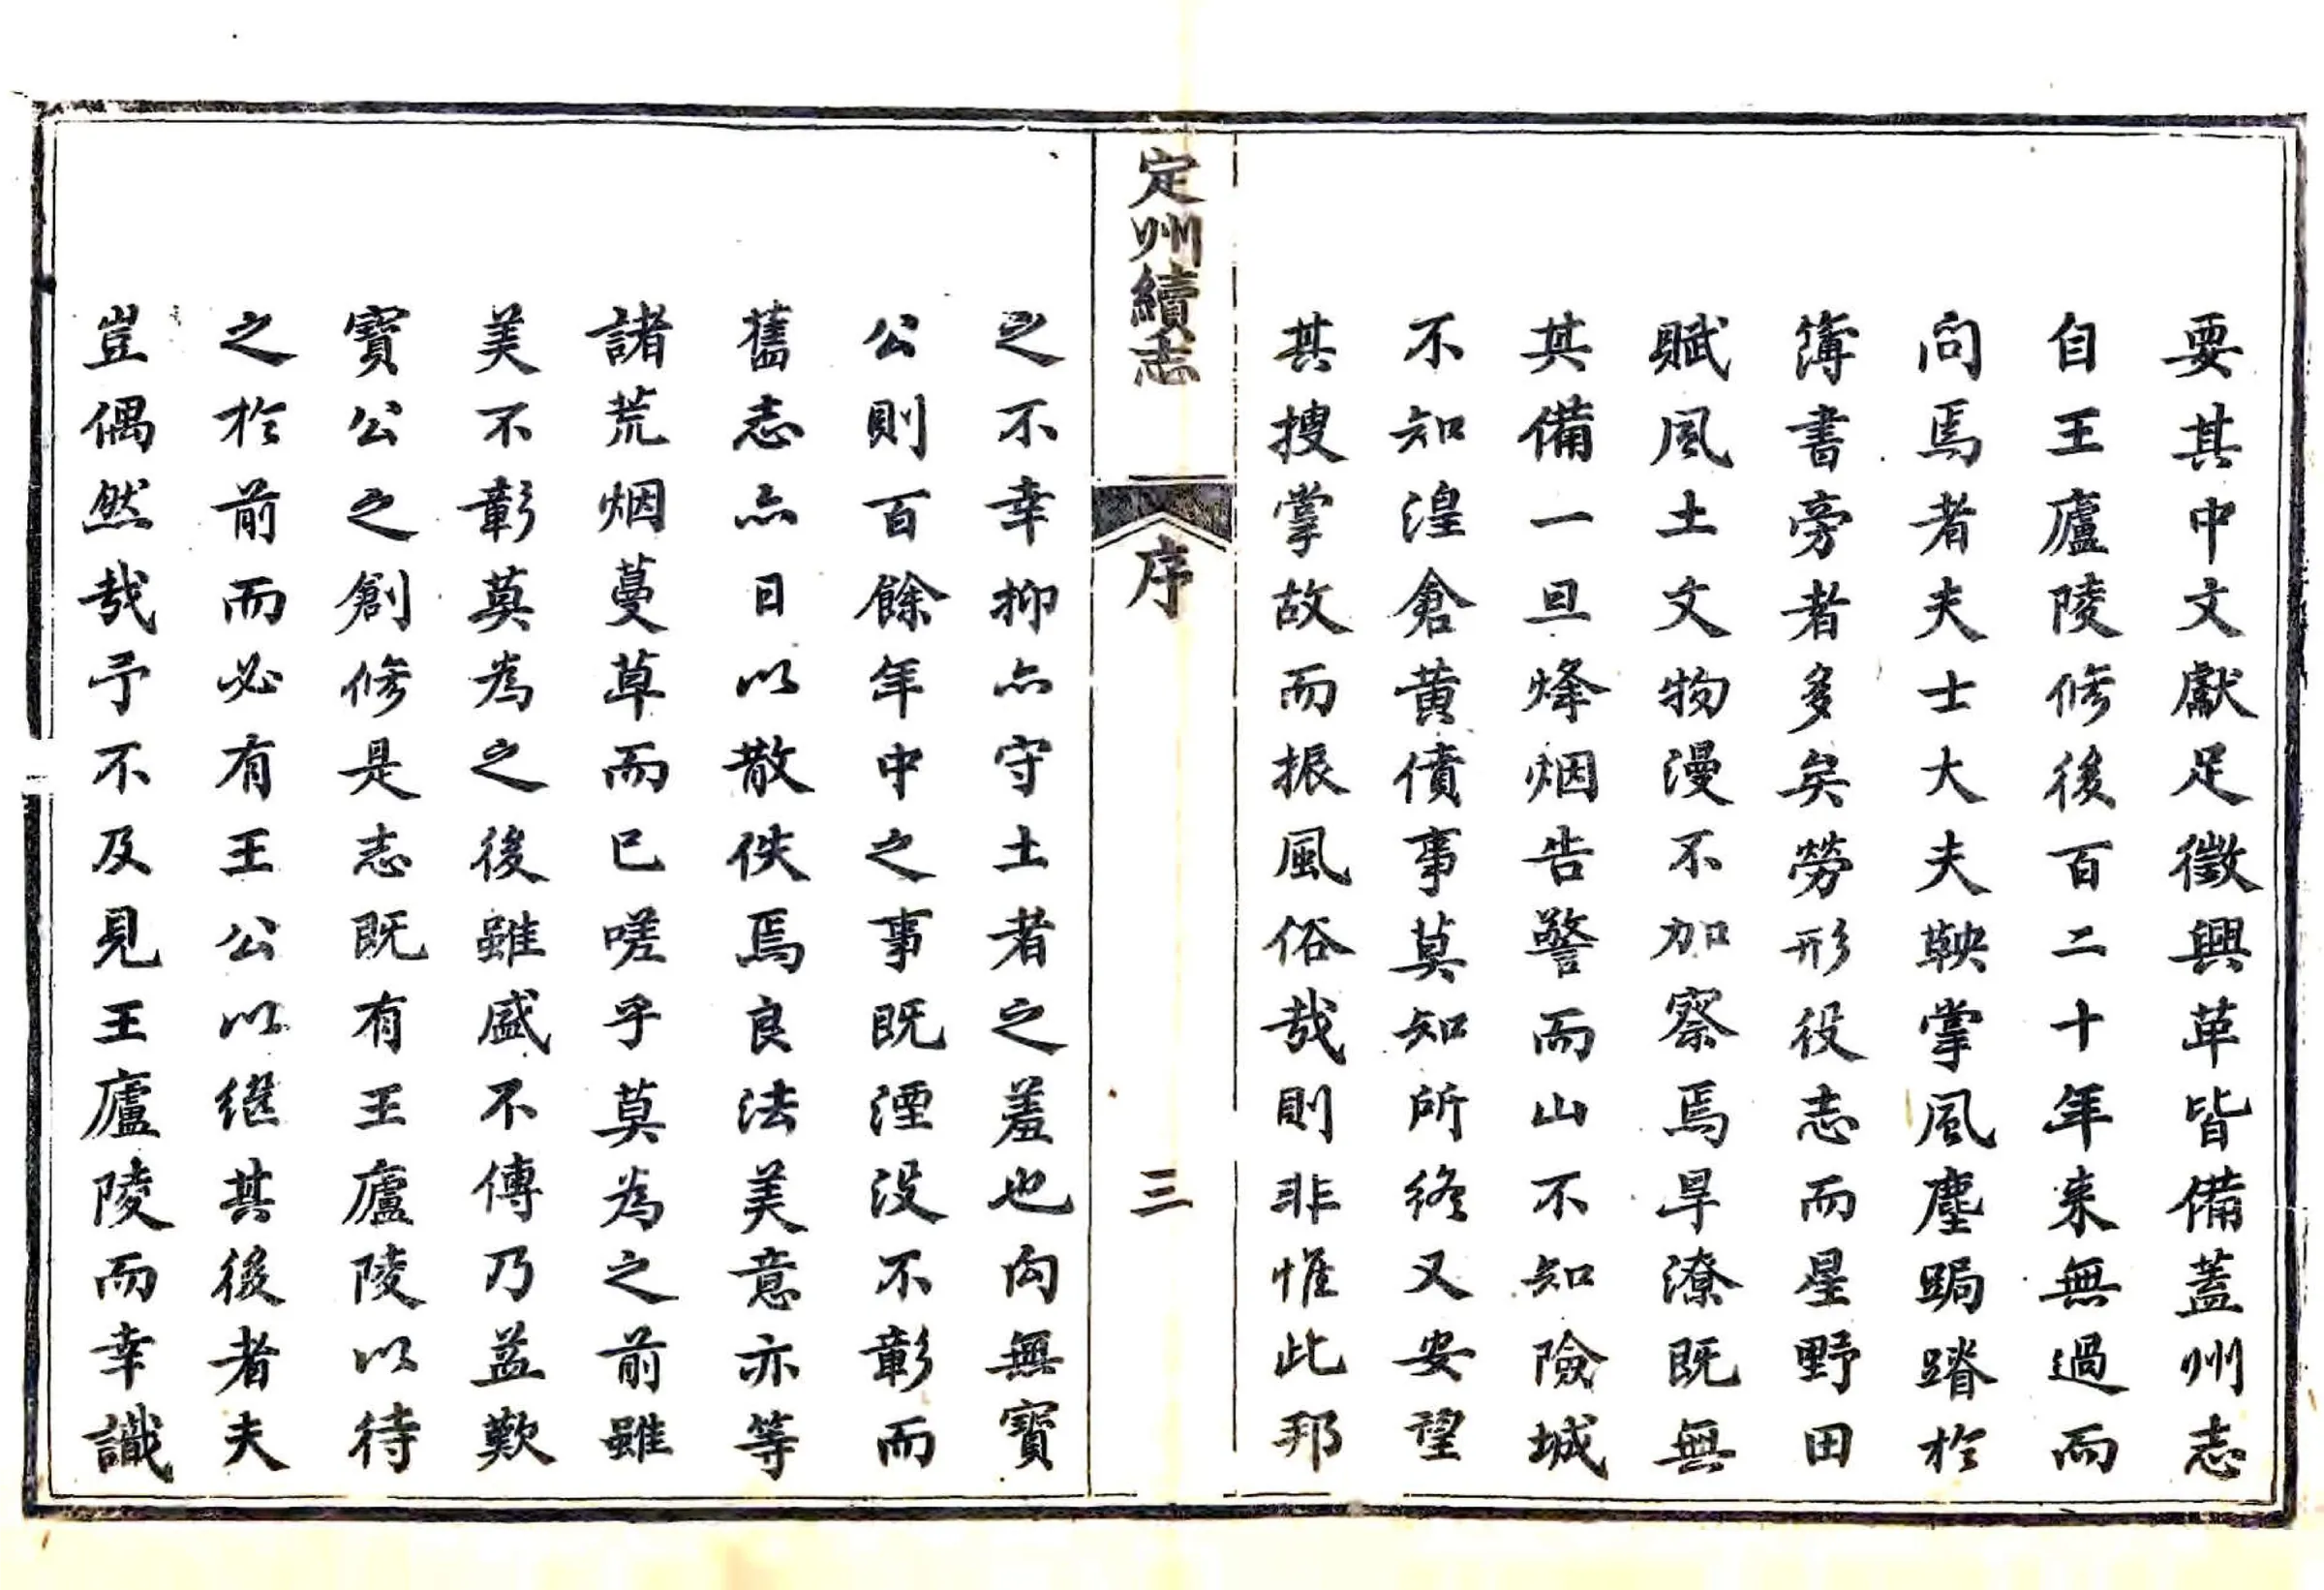 要其中文獻足徵興革皆備蓋州志
自王廬陵修後百二十年来無過而
问焉者夫士大夫鞅掌風塵跼蹐於
簿書旁者多矣勞形役志而星野田
賦風土文物漫不加察焉旱潦既無
其備一旦烽烟告警而山不知險城
不知湟倉黄債事莫知所終又安望
其搜掌故而振風俗哉則非惟此邦
定州續志
序
三
之不幸抑亦守土者之羞也向無寶
公則百餘年中之事既湮没不彰而
舊志亦日以散佚焉良法美意亦等
諸荒烟蔓草而已嗟乎莫為之前雖
美不彰莫為之後雖盛不傳乃益歎
寶公之創修是志既有王廬陵以待
之於前而必有王公以继其後者夫
豈偶然哉予不及見王廬陵而幸識